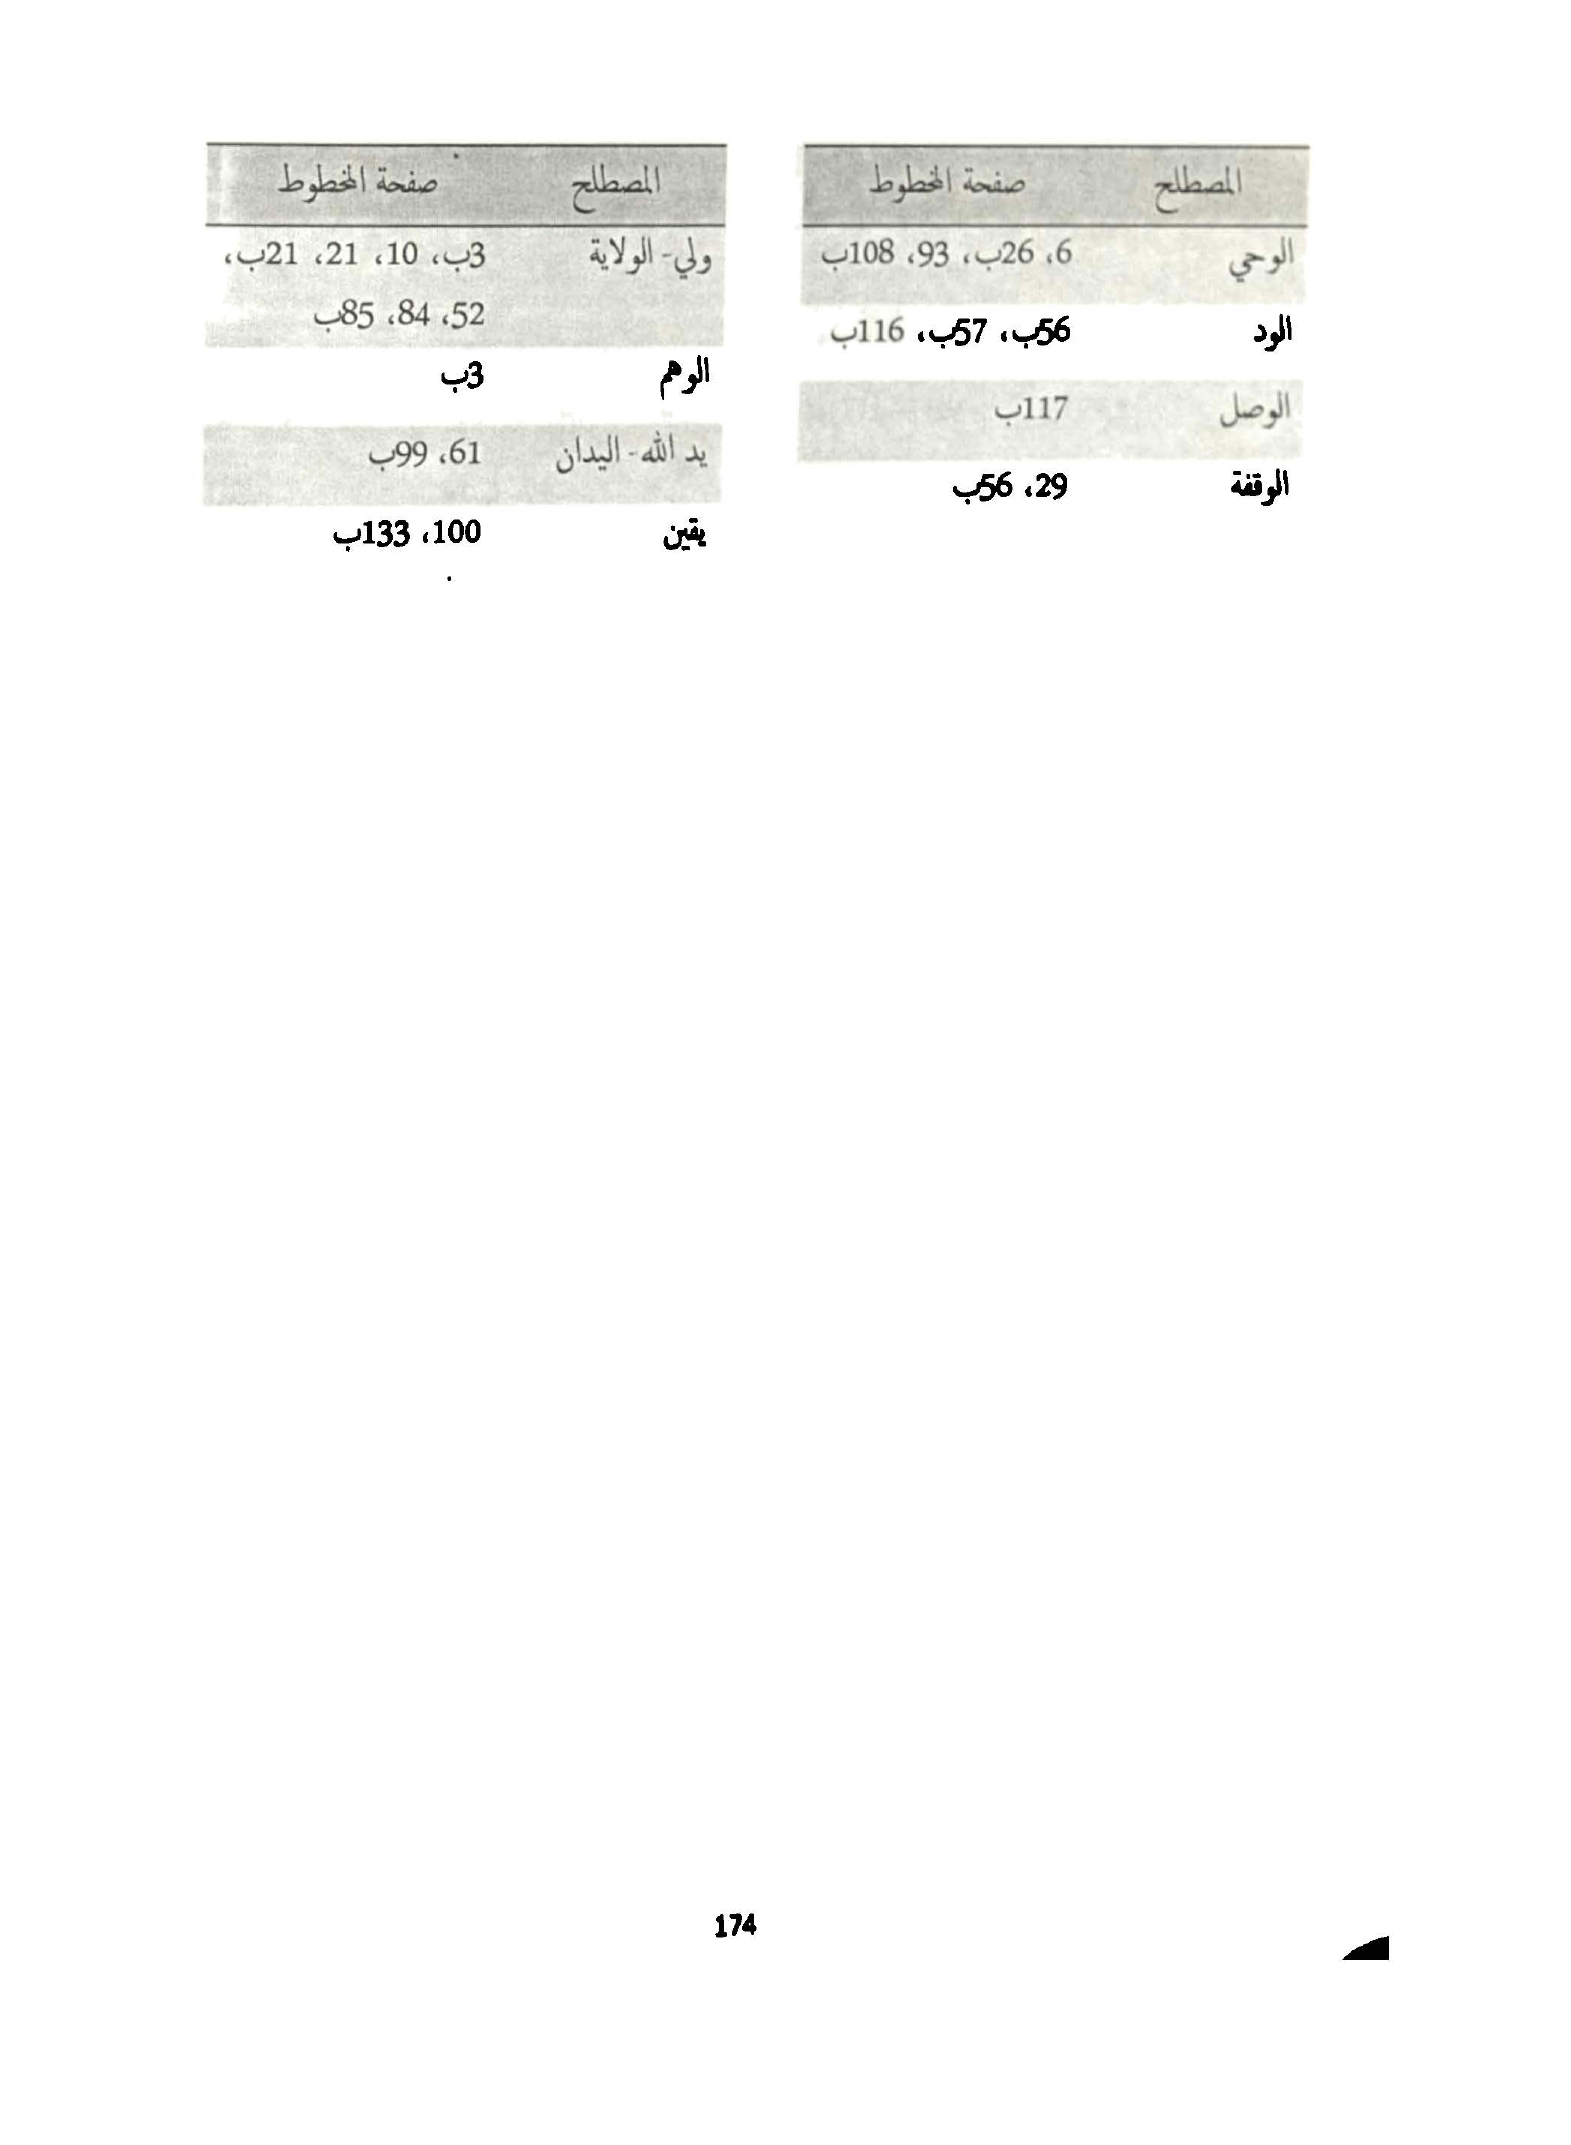 المصطلح صفحة المخطوط
الوحي 6، 26ب، 93، 108ب
الود 56ب، 57ب، 116ب
الوصل 117ب
الوقفة 29، 56ب
المصطلح صفحة المخطوط
ولي- الولاية 3ب، 10، 21، 21ب،
52، 84، 85ب
الوهم 3ب
يد الله- اليدان 61، 99ب
يقين 100، 133ب
174